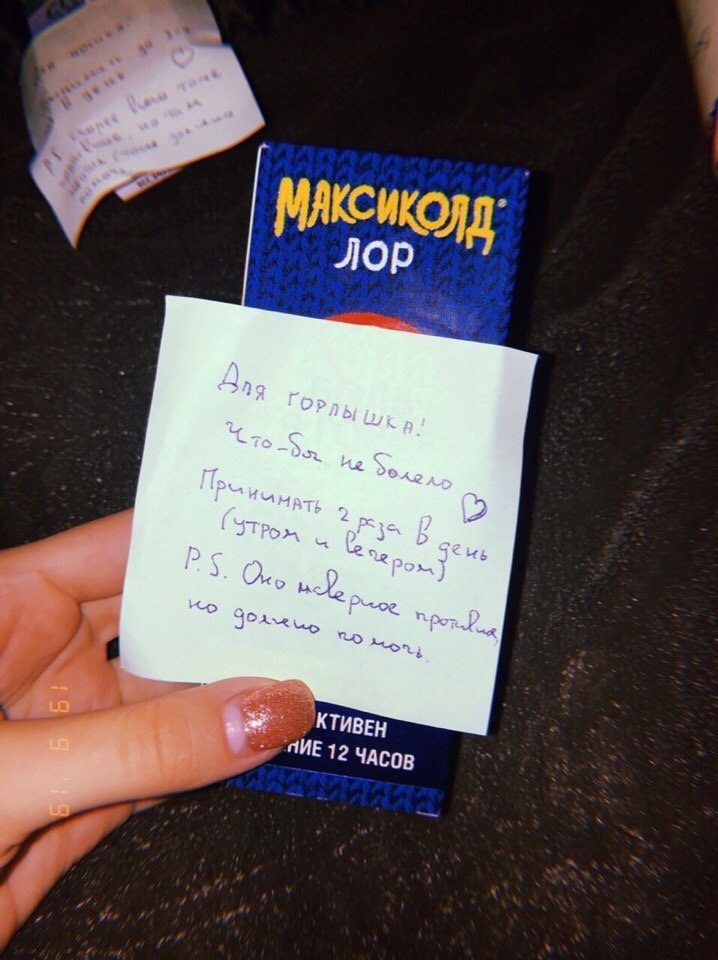 для кошка!
в день ♡
P.S. скорее всего тоже
но там
должно
МАКСИКОЛД®
ЛОР
Для горлышка!
Что-бы не болело ♡
Принимать 2 раза в день
(утром и вечером)
P.S. Оно наверное противное,
но должно помочь.
КТИВЕН
НИЕ 12 ЧАСОВ
19 9 '19